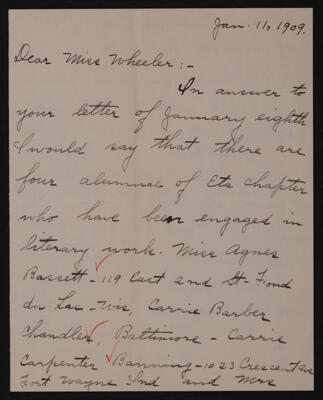 Jan. 11, 1909.
Dear Miss Wheeler:-
In answer to
your letter of January eighth
I would say that there are
four alumnae of Eta chapter
who have been engaged in
literary work. Miss Agnes
Bassett - 119 East 2nd St- Fond
du Lac - Wis, Carrie Barber
Chandler, Baltimore - Carrie
Carpenter Banning - 1023 Crescent ave
Fort Wayne Ind and Mrs